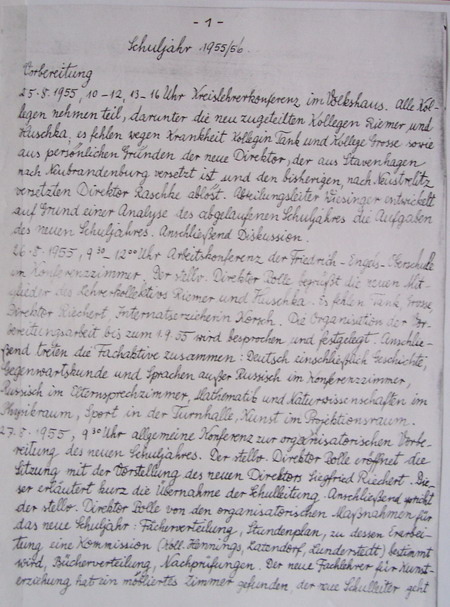 - 1 -
Schuljahr 1955/56.
Vorbereitung
25.8.1955, 10-12, 13-16 Uhr Kreislehrerkonferenz im Volkshaus. Alle Kol-
legen nehmen teil, darunter die neu zugeteilten Kollegen Riemer und
Kuschka, es fehlen wegen Krankheit Kollegin Tank und Kollege Grosse sowie
aus persönlichen Gründen der neue Direktor, der aus Stavenhagen
nach Neubrandenburg versetzt ist und den bisherigen, nach Neustrelitz
versetzten Direktor Raschke ablöst. Abteilungsleiter Kiesinger entwickelt
auf Grund einer Analyse des abgelaufenen Schuljahres die Aufgaben
des neuen Schuljahres. Anschließend Diskussion.
26.8.1955, 9³⁰-12⁰⁰ Uhr Arbeitskonferenz der Friedrich-Engels-Oberschule
im Konferenzzimmer. Der stellv. Direktor Rolle begrüßt die neuen Mit-
glieder des Lehrerkollektivs Riemer und Kuschka. Es fehlen Tank, Grosse,
Direktor Riechert, Internatserzieherin Korsch. Die Organisation der Vor-
bereitungsarbeit bis zum 1.9.55 wird besprochen und festgelegt. Anschlie-
ßend treten die Fachaktive zusammen: Deutsch einschließlich Geschichte,
Gegenwartskunde und Sprachen außer Russisch im Konferenzzimmer,
Russisch im Elternsprechzimmer, Mathematik und Naturwissenschaften im
Physikraum, Sport in der Turnhalle, Kunst im Projektionsraum.
27.8.1955, 9³⁰ Uhr allgemeine Konferenz zur organisatorischen Vorbe-
reitung des neuen Schuljahres. Der stellv. Direktor Rolle eröffnet die
Sitzung mit der Vorstellung des neuen Direktors Siegfried Riechert. Die-
ser erläutert kurz die Übernahme der Schulleitung. Anschließend spricht
der stellv. Direktor Rolle von den organisatorischen Maßnahmen für
das neue Schuljahr: Fächerverteilung, Stundenplan, zu dessen Erarbei-
tung eine Kommission (Koll. Hennings, Katzendorf, Lunderstedt) bestimmt
wird, Bücherverteilung, Nachprüfungen. Der neue Fachlehrer für Kunst-
erziehung hat ein möbliertes Zimmer gefunden, der neue Schulleiter geht